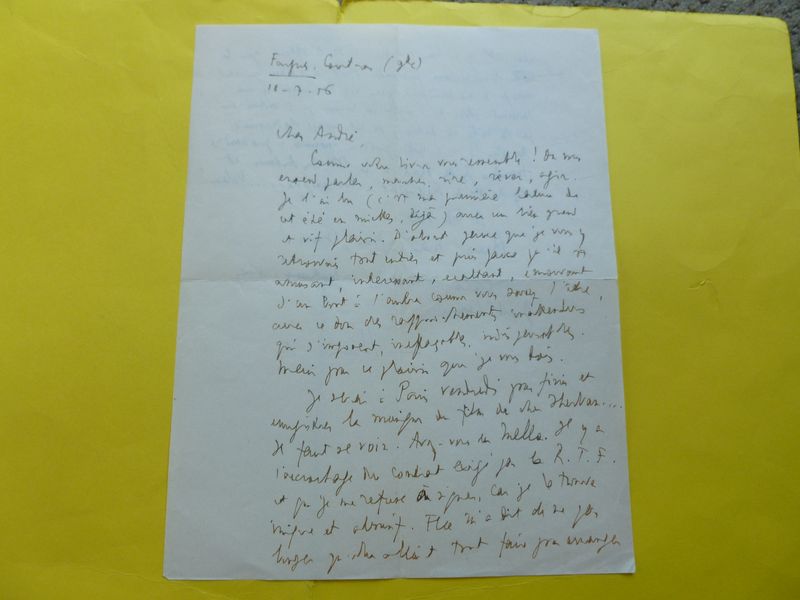 18-7-56
Cher André,
Comme votre livre vous ressemble ! On vous
entend parler, marcher, rire, rêver, agir.
Je l'ai lu (c'est ma première lecture de
cet été en miettes, déjà) avec un très grand
et vif plaisir. D'abord parce que je vous y
retrouvais tout entier et puis parce qu'il est
amusant, intéressant, exaltant, émouvant
d'un bout à l'autre comme vous savez l'être,
avec ce don des rapprochements inattendus
qui s'imposent, ineffaçables,
Merci pour ce plaisir que je vous dois.
Je serai à Paris vendredi pour finir et
enregistrer la musique du film de cher
Il faut se voir. Avez-vous du Mella. Il y a
l'accrochage du contrat exigé par la R.T.F.
et que je me refuse à signer, car je le trouve
inique et abusif. m'a dit de ne pas
bouger qu'elle allait tout faire pour arranger